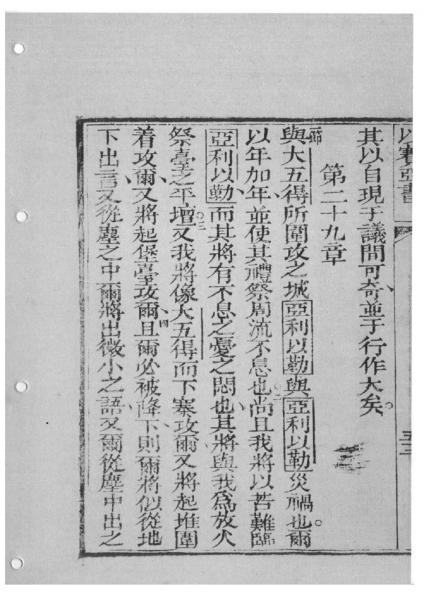 以賽亞書
五三
其以自現于議間可奇並于行作大矣。
第二十九章
一節
與大五得所圍攻之城亞利以勒與亞利以勒災禍也。爾
以年加年、並使其禮祭周流不息也。尚且我將以苦難臨
亞利以勒、而其將有不息之憂之悶也、其將與我爲放火
祭臺之平壇。又我將像大五得而下寨攻爾、又將起堆圍
着攻爾、又將起堡臺攻爾。且爾必被降下、則爾將似從地
下出言、又從塵之中爾將出微小之語、又爾從塵中出之